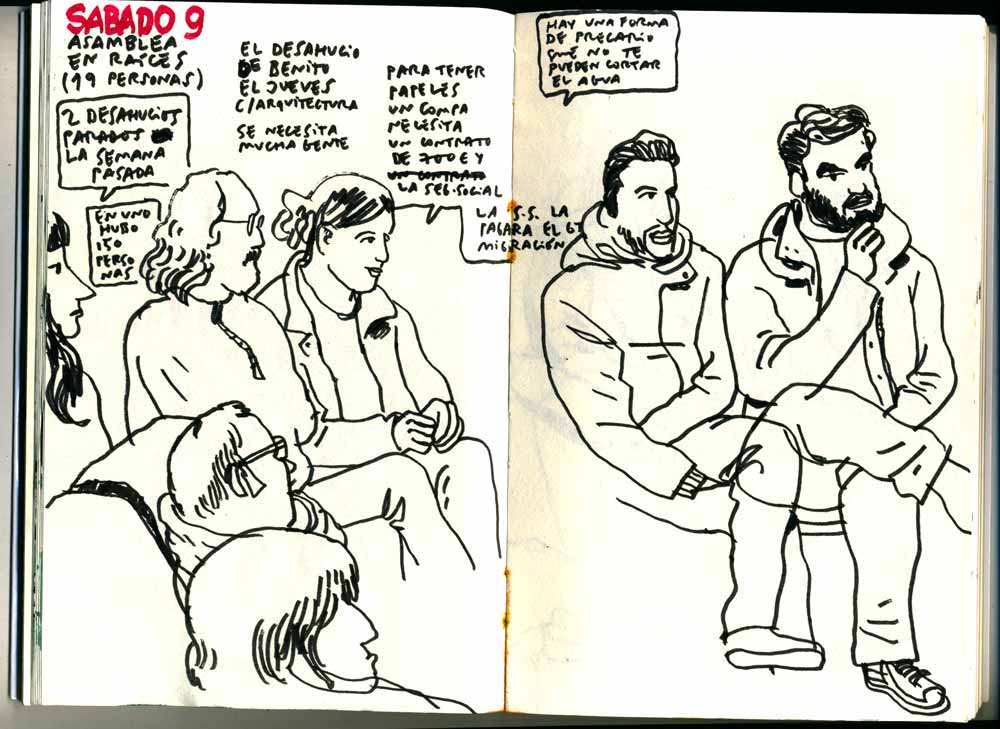 SABADO 9
ASAMBLEA
EN RAICES
(19 PERSONAS)
2 DESAHUCIOS
PARADOS
LA SEMANA
PASADA
EN UNO
HUBO
150
PERSO
NAS
EL DESAHUCIO
DE BENITO
EL JUEVES
C/ARQUITECTURA
SE NECESITA
MUCHA GENTE
PARA TENER
PAPELES
UN COMPA
NECESITA
UN CONTRATO
DE 700 € Y
UN CONTRATO
LA SEG-SOCIAL
LA S.S. LA
PAGARA EL GT
MIGRACIÓN
HAY UNA FORMA
DE PRECARIO
QUE NO TE
PUEDEN CORTAR
EL AGUA